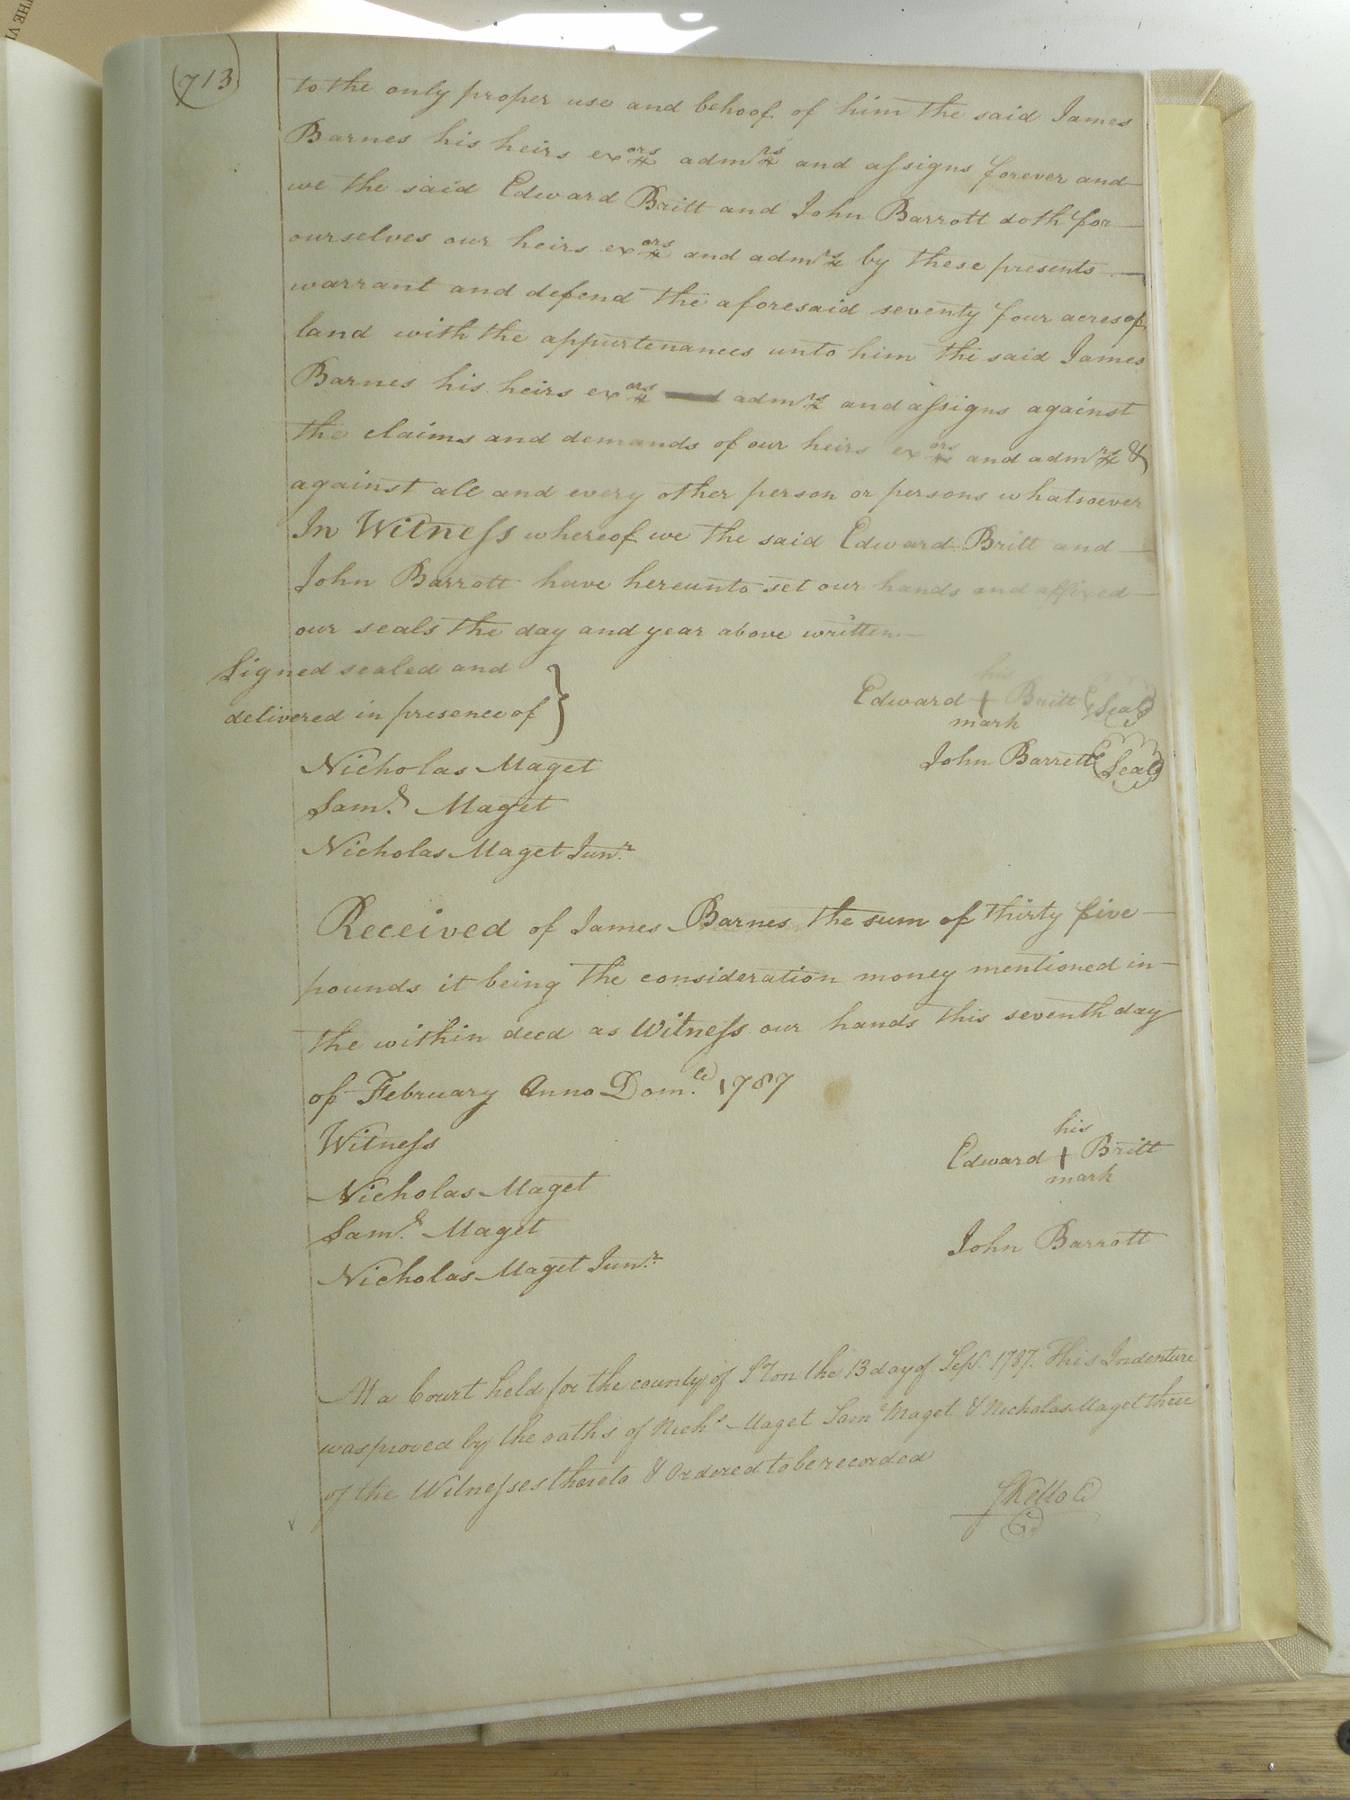 713
to the only proper use and behoof of him the said James
Barnes his heirs exors admrs and assigns forever and
we the said Edward Britt and John Barrott doth for
ourselves our heirs exors and admrs by these presents
warrant and defend the aforesaid seventy four acres of
land with the appurtenances unto him the said James
Barnes his heirs exors admrs and assigns against
the claims and demands of our heirs exors and admrs &
against all and every other person or persons whatsoever
In Witness whereof we the said Edward Britt and
John Barrott have hereunto set our hands and affixed
our seals the day and year above written
Signed sealed and
delivered in presence of
his
Edward + Britt (Seal)
mark
Nicholas Maget
John Barrett (Seal)
Saml. Maget
Nicholas Maget Junr.
Received of James Barnes the sum of thirty five
pounds it being the consideration money mentioned in
the within deed as Witness our hands this seventh day
of February Anno Dom. 1787
Witness
his
Edward + Britt
mark
Nicholas Maget
Saml. Maget
John Barrott
Nicholas Maget Junr.
At a Court held for the county of Sºton the 13 day of Sept. 1787. This Indenture
was proved by the oaths of Nichs Maget Saml Maget & Nicholas Maget three
of the Witnesses thereto & Ordered to be recorded